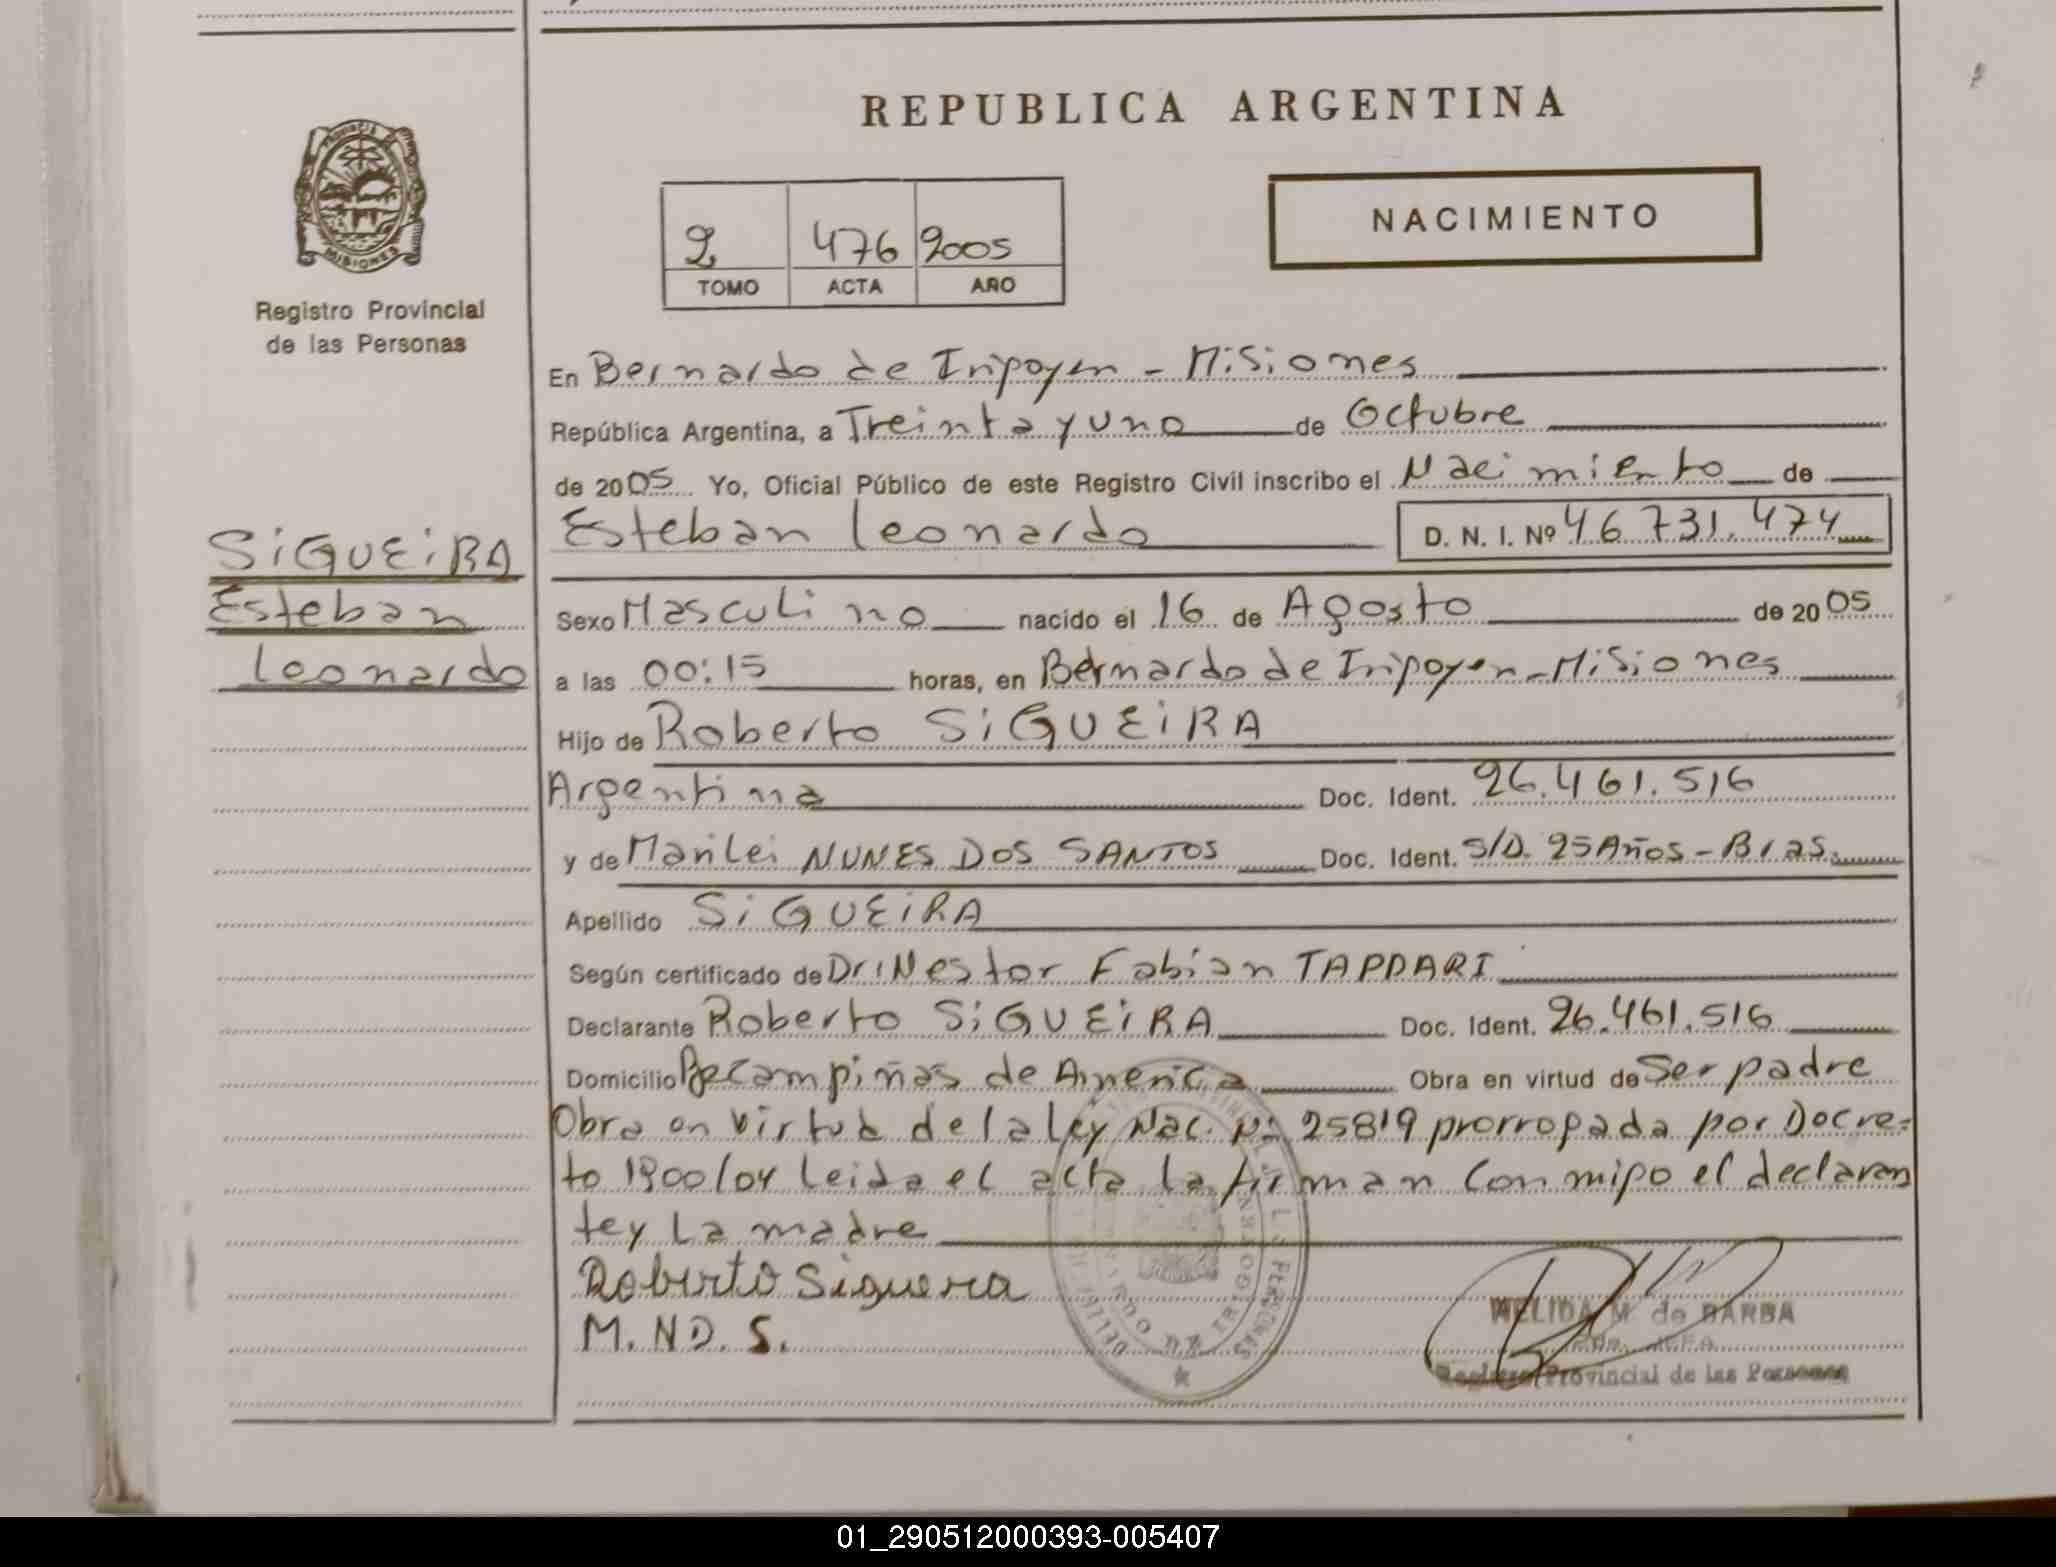 REPUBLICA ARGENTINA
PROVINCIA
MISIONES
Registro Provincial
de las Personas
NACIMIENTO
2 476 2005
TOMO ACTA AÑO
En Bernardo de Irigoyen - Misiones
República Argentina, a Treinta y uno de Octubre
de 2005 Yo, Oficial Público de este Registro Civil inscribo el Nacimiento de
SiGUEiRA
Esteban
Leonardo
Esteban Leonardo D. N. I. Nº 46.731.474
Sexo Masculino nacido el 16 de Agosto de 2005
a las 00:15 horas, en Bernardo de Irigoyen - Misiones
Hijo de Roberto SiGUEiRA
Argentina Doc. Ident. 26.461.516
y de Marilei NUNES DOS SANTOS Doc. Ident. S/D. 25 Años - Bras.
Apellido SiGUEiRA
Según certificado de Dr: Nestor Fabian TAPDARI
Declarante Roberto SiGUEiRA Doc. Ident. 26.461.516
Domicilio Campiñas de America Obra en virtud de Ser padre
Obra en virtud de la ley Nac. nº 25819 prorrogada por Decre=
to 1900/04 leida el acta la firman conmigo el declaran
te y la madre
Roberto Siguera
M. N D. S.
M. de BARBA
JEFA
Registro Provincial de las Personas
01_290512000393-005407